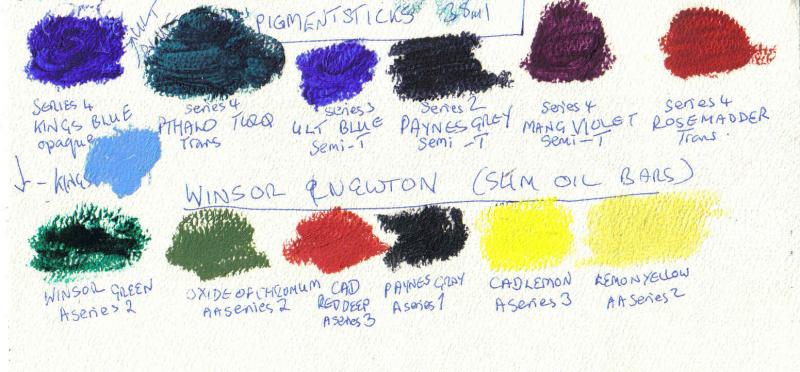 PIGMENTSTICKS 38ml
ULT
SERIES 4
KINGS BLUE
opaque
Series 4
PTHALO TURQ
Trans
Series 3
ULT BLUE
Semi-T
Series 2
PAYNES GREY
Semi-T
Series 4
MANG VIOLET
Semi-T
Series 4
ROSEMADDER
Trans.
- KINGS
WINSOR & NEWTON (SLIM OIL BARS)
WINSOR GREEN
A series 2
OXIDE OF CHROMUM
AA series 2
CAD
RED DEEP
A series 3
PAYNES GRAY
A series 1
CAD LEMON
A series 3
LEMON YELLOW
AA series 2